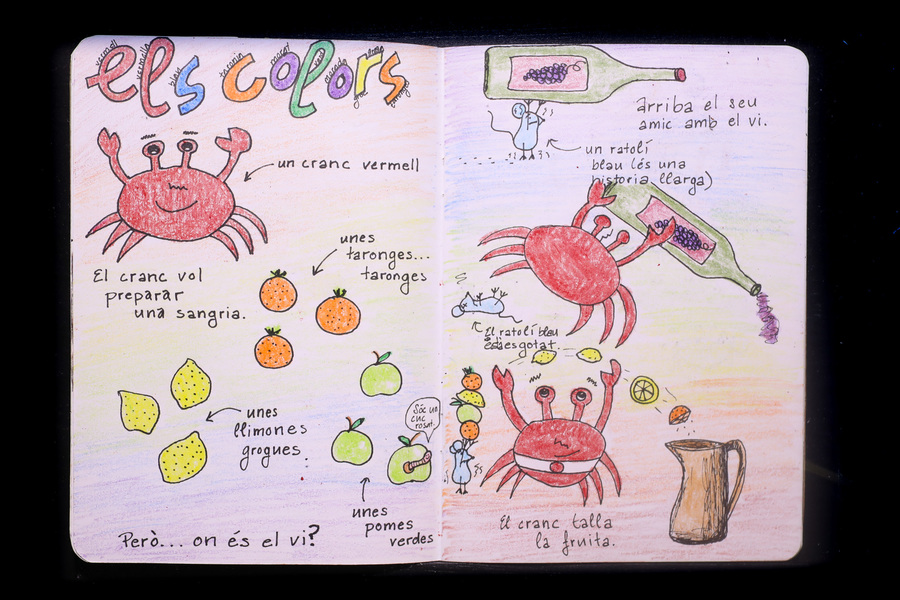 els colors
un cranc vermell
El cranc vol
preparar
una sangria.
unes
taronges...
taronges
unes
llimones
grogues
Sóc un
cuc
rosa!
unes
pomes
verdes
Però... on és el vi?
arriba el seu
amic amb el vi.
un ratolí
blau (és una
història llarga)
El ratolí blau
esgotat.
El cranc talla
la fruita.